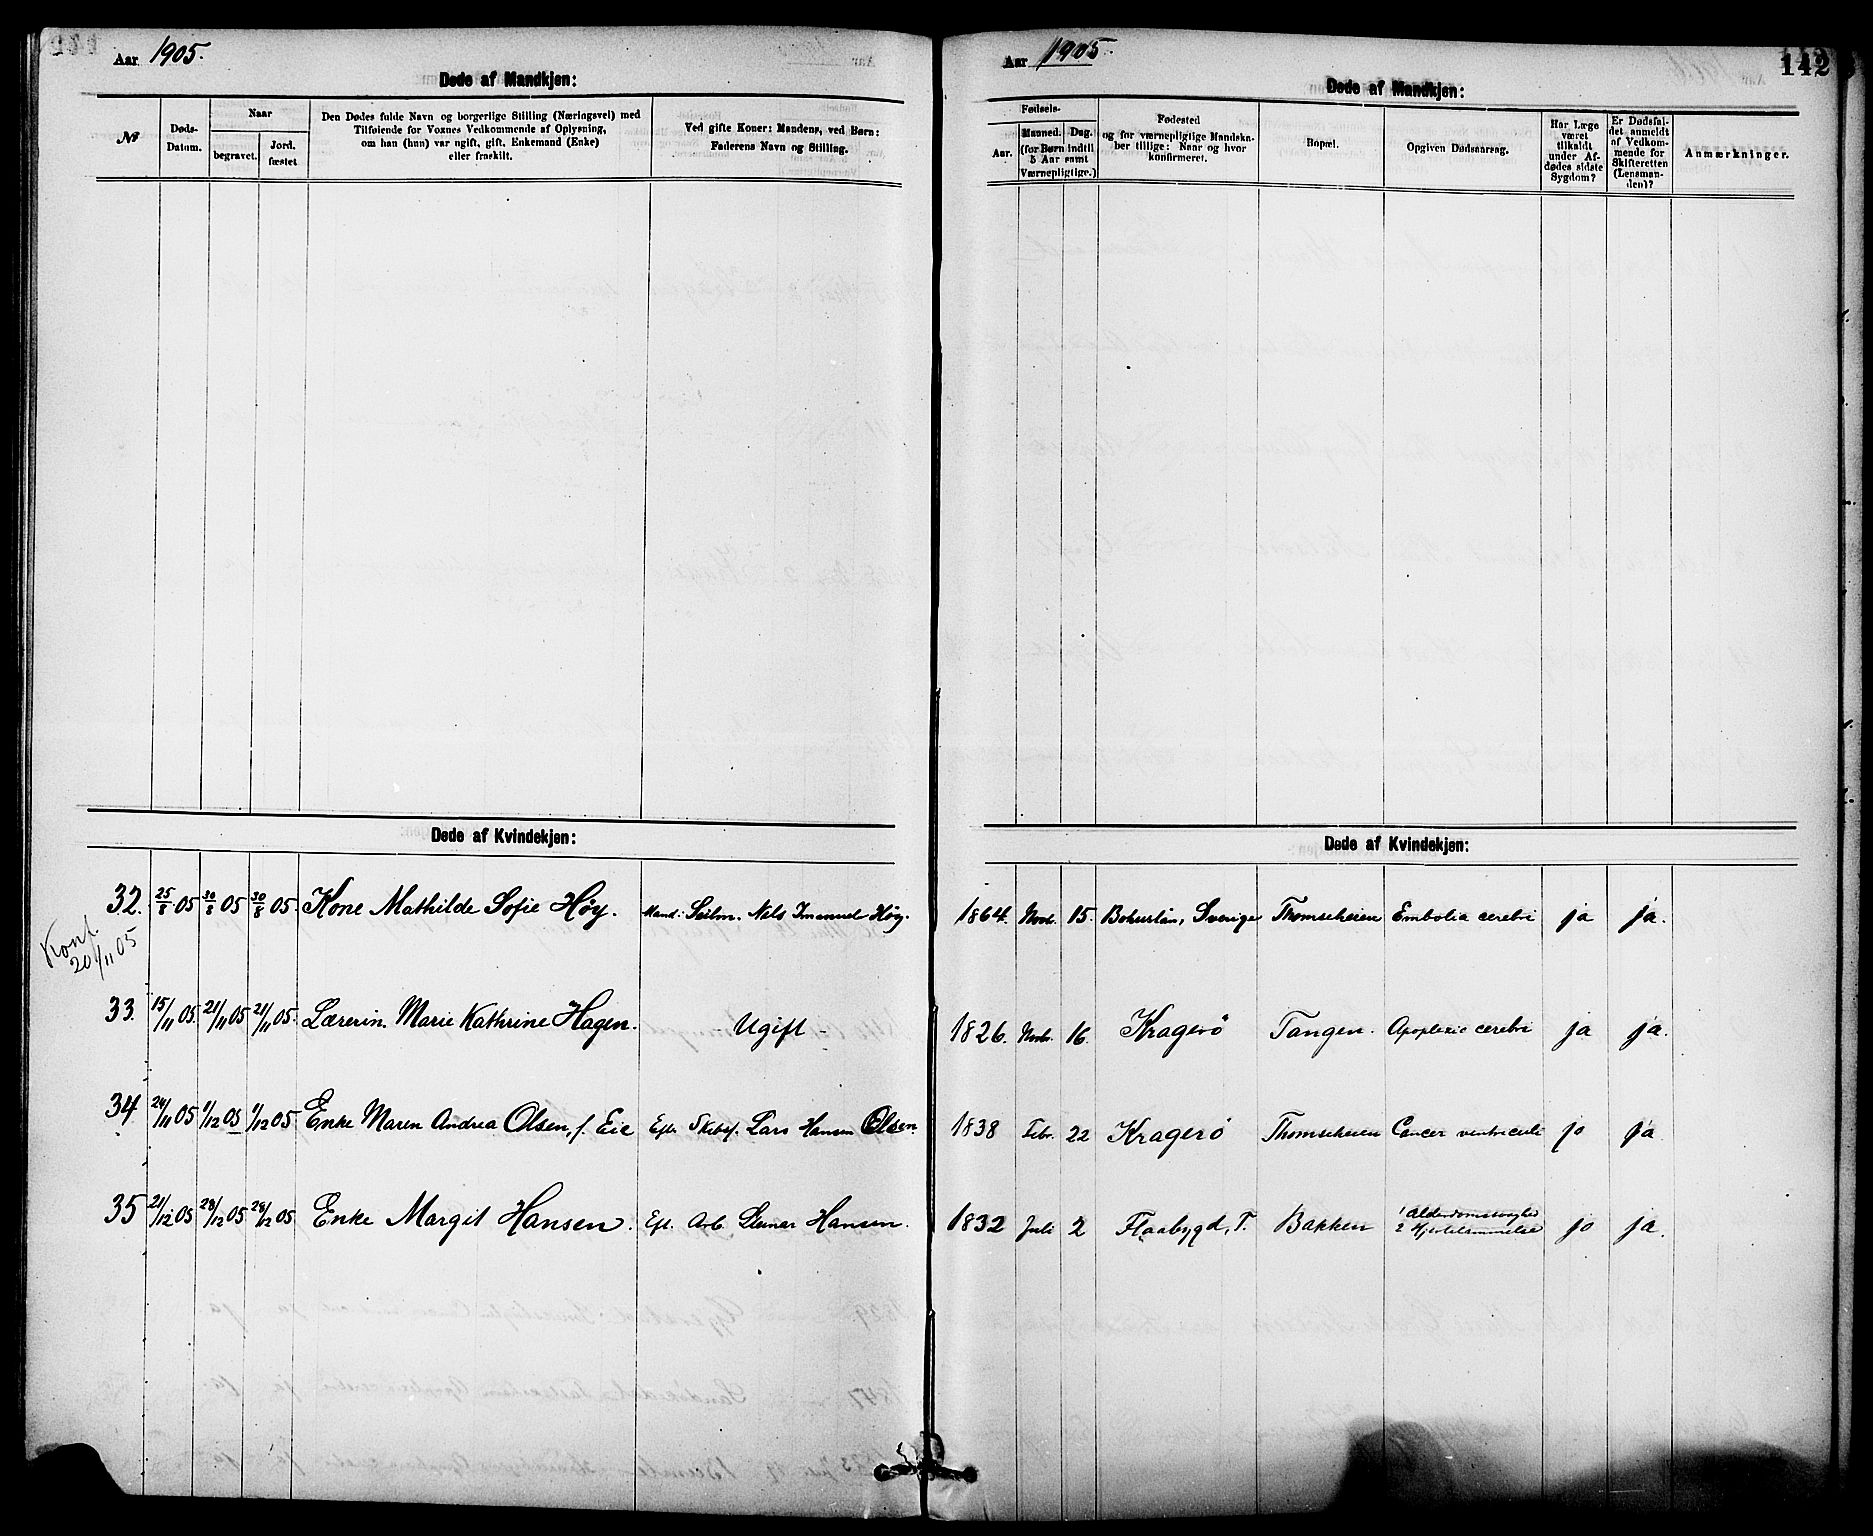 Aar 1905.
Døde af Mandkjøn:
№
Døds-Datum.
Naar
begravet.
Jord. fæstet
Den Dødes fulde Navn og borgerlige Stilling (Næringsvei) med
Tilføiende for Voxnes Vedkommende af Oplysning,
om han (hun) var ugift, gift, Enkemand (Enke)
eller fraskilt.
Ved gifte Koner: Mandens, ved Børn:
Faderens Navn og Stilling.
Aar 1905.
142
Døde af Mandkjøn:
Fødsels-
Aar.
Maaned. Dag.
(for Børn indtil
5 Aar samt
Værnepligtige.)
Fødested
og for værnepligtige Mandska-
ber tillige: Naar og hvor
konfirmeret.
Bopæl.
Opgiven Dødsaarsag.
Har Læge
været
tilkaldt
under Af-
dødes sidste
Sygdom?
Er Dødsfal-
det anmeldt
af Vedkom-
mende for
Skifteretten
(Lensman-
den)?
Anmærkninger.
Døde af Kvindekjøn:
Døde af Kvindekjøn:
32. 25/8 05 30/8 05 30/8 05. Kone Mathilde Sofie Høy. Mand: Seilm. Nils Imanuel Høy. 1864. Novb. 15. Bohuslän, Sverige Thomseheien Embolia cerebri ja ja.
Konf.
20/11 05
33. 15/11 05. 21/11 05 21/11 05. Lærerin. Marie Kathrine Hagen. Ugift – 1826. Novb. 16. Kragerö Tangen. Apoplexie cerebri ja ja.
34 24/11 05 1/12 05 1/12 05 Enke Maren Andrea Olsen, f. Eie Eft. Skibsf. Lars Hansen Olsen. 1838 Febr. 22 Kragerö Thomseheien Cancer ventriculi jo ja
35 21/12 05 28/12 05 28/12 05 Enke Margit Hansen. Eft. Arb. Steinar Hansen. 1832 Juli 2 Flaabygd, T. Bakken 1 Alderdomssvaghed
2 Hjertelammelse jo ja.